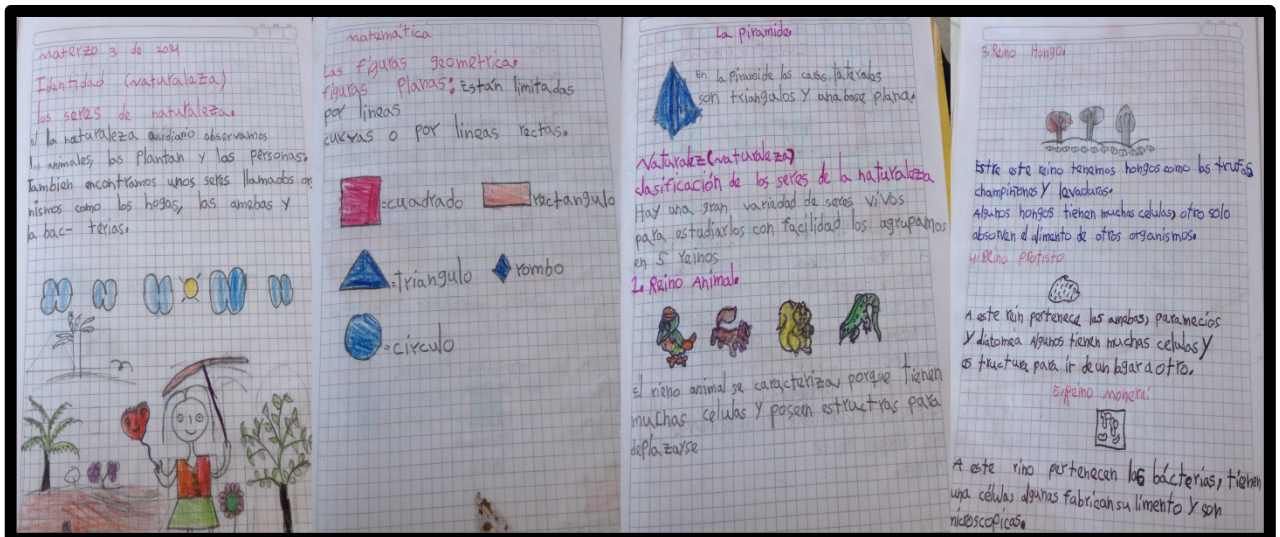 materzo 3 de 2014
Identidad (naturaleza)
los seres de naturaleza.
la naturaleza observamos
animales, las Plantan y las personas.
Tambien encontramos unos seres llamados or
nismos como los hogas, las amebas y
la bac- terias.
matemática
Las figuras geometricas
figuras planas: Están limitadas
por lineas
curvas o por lineas rectas.
=cuadrado
rectangulo
=triangulo
rombo
=circulo
La piramide.
En la Piramide las caras laterales
son triangulos y una base plana.
Naturalez (naturaleza)
clasificación de los seres de la naturaleza
Hay una gran variedad de seres vivos
para estudiarlos con facilidad los agrupamos
en 5 reinos
1. Reino Animal.
El rieno animal se caracteriza porque tienen
muchas celulas y poseen estructras para
deplazarse
3. Reino Hongo.
Estre este reino tenemos hongos como las trufas
champiñones y levaduras.
Algunos hongos tienen muchas celulas, otro solo
absorven el alimento de otros organismos.
4. Reino Protisto
A este rein pertenece las amebas, paramecios
y diatomea Algunos tienen muchas celulas y
es tructura para ir de un lugar a otro.
5. Reino monera:
A este rino pertenecen las bácterias, tienen
una célula, algunas fabrican su limento y son
microscopicas.